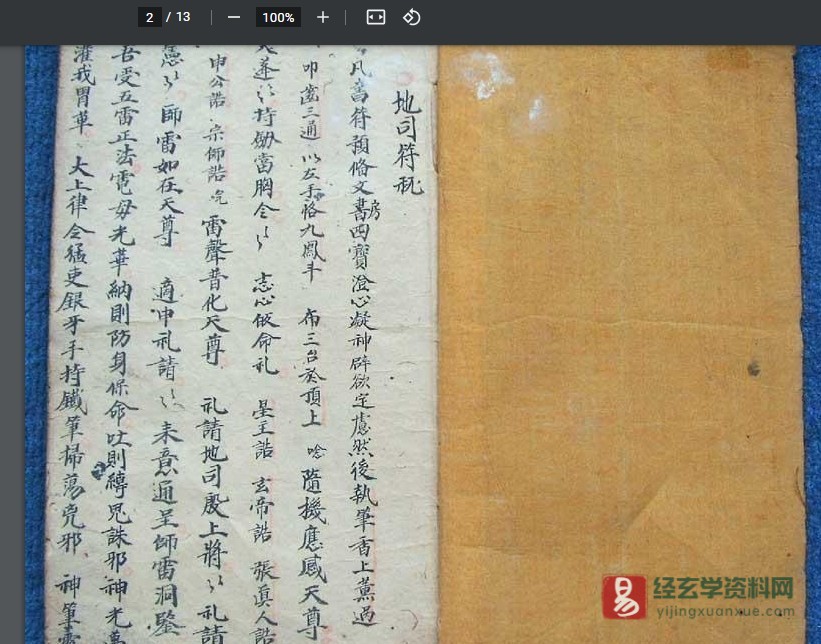 2 / 13
100%
地司符秘
凡書符預俻文書房四寶澄心凝神辟欲定慮然後執筆香上薰過
叩齒三通 以左手恪九鳳斗 布三台於頂上 唸 隨機應感天尊
遂〻持劍當胸令〻 志心皈命礼 星主誥 玄帝誥 張真人誥
申公誥 宗師誥 雷聲普化天尊 礼請地司殷上將〻 礼請
〻 師雷如在天尊 適申礼請〻 未意通呈師雷洞鑒
吾受五雷正法電母光華納則防身保命吐則縛鬼誅邪神光萬
灌我胃草 大上律令猛吏銀牙手持鐵筆掃蕩兇邪 神筆
经玄学资料网
yijingxuanxue.com